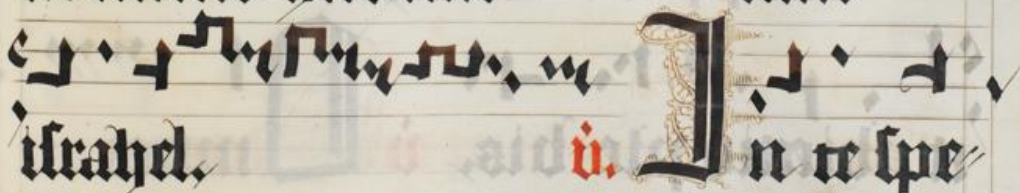 iſrahel. v̇. In te ſpe